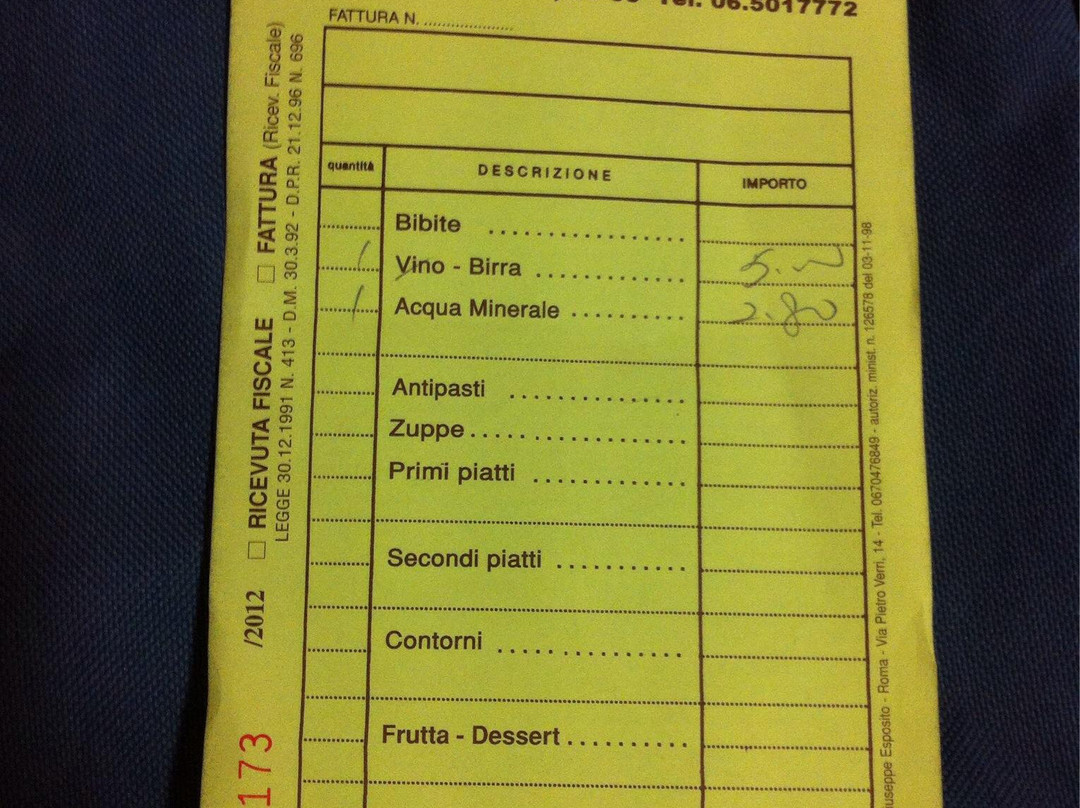 Tel. 06.5017772
FATTURA N. ....................
quantità DESCRIZIONE IMPORTO
Bibite ....................
1 Vino - Birra ................ 5.00
1 Acqua Minerale ........... 2.80
Antipasti .................
Zuppe .....................
Primi piatti ...............
Secondi piatti .............
Contorni ..................
Frutta - Dessert ...........
173
/2012
☐ RICEVUTA FISCALE ☐ FATTURA (Ricev. Fiscale)
LEGGE 30.12.1991 N. 413 - D.M. 30.3.92 - D.P.R. 21.12.96 N. 696
useppe Esposito - Roma - Via Pietro Verri, 14 - Tel. 0670476849 - autoriz. minist. n. 126578 del 03-11-98